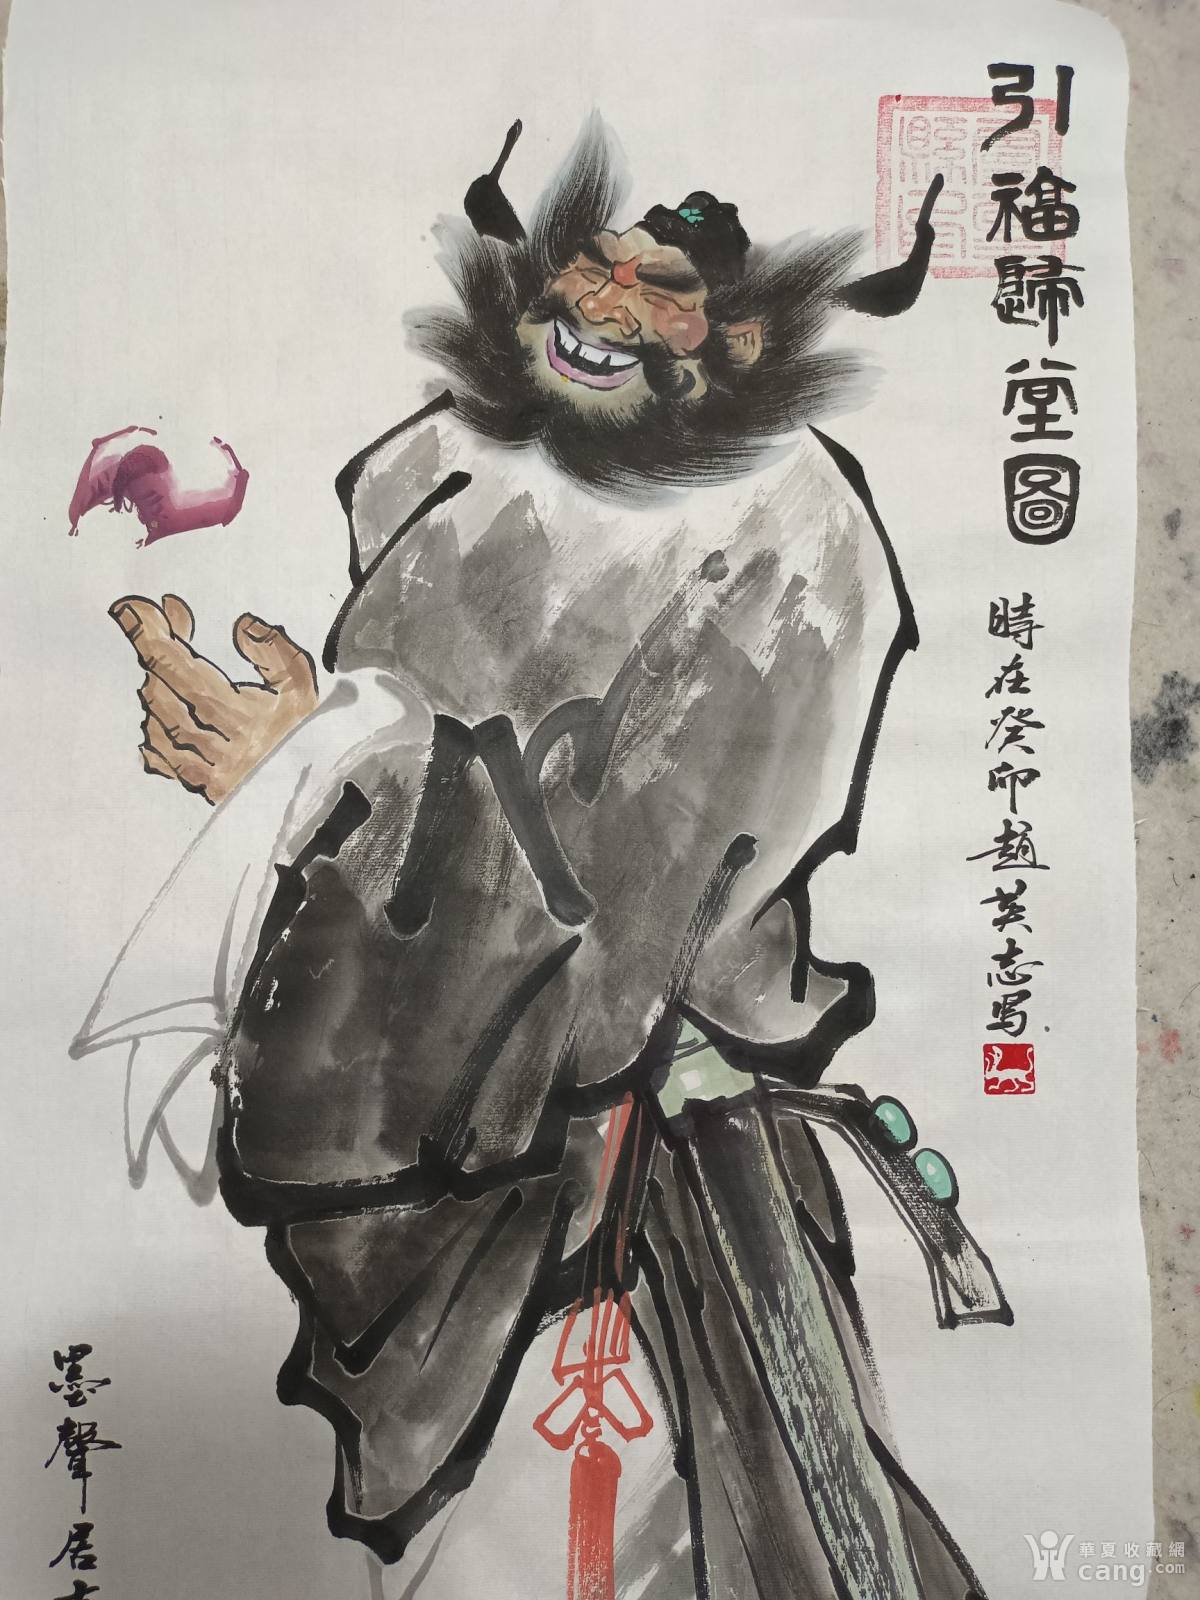 引福歸堂圖
時在癸卯趙英志写
墨聲居
華夏收藏網
cang.com